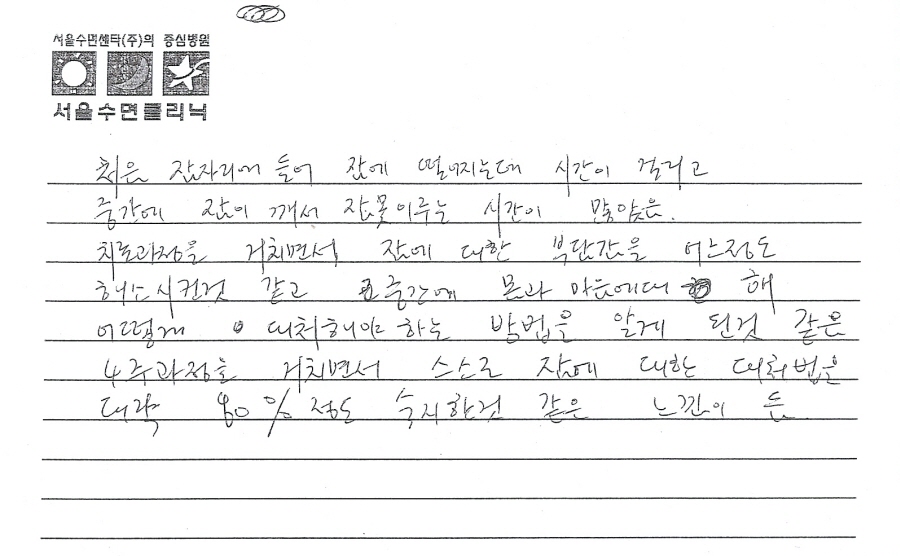 서울수면센타(주)의 중심병원
서울수면클리닉
처음 잠자리에 들어 잠에 떨어지는데 시간이 걸리고
중간에 잠이 깨서 잠못이루는 시간이 많았음.
치료과정을 거치면서 잠에 대한 부담감을 어느정도
해소시킨것 같고 중간에 몸과 마음에대해
어떻게 대처해야 하는 방법을 알게 된것 같음
4주과정을 거치면서 스스로 잠에 대한 대처법을
대략 80%정도 숙지한것 같은 느낌이 듬.